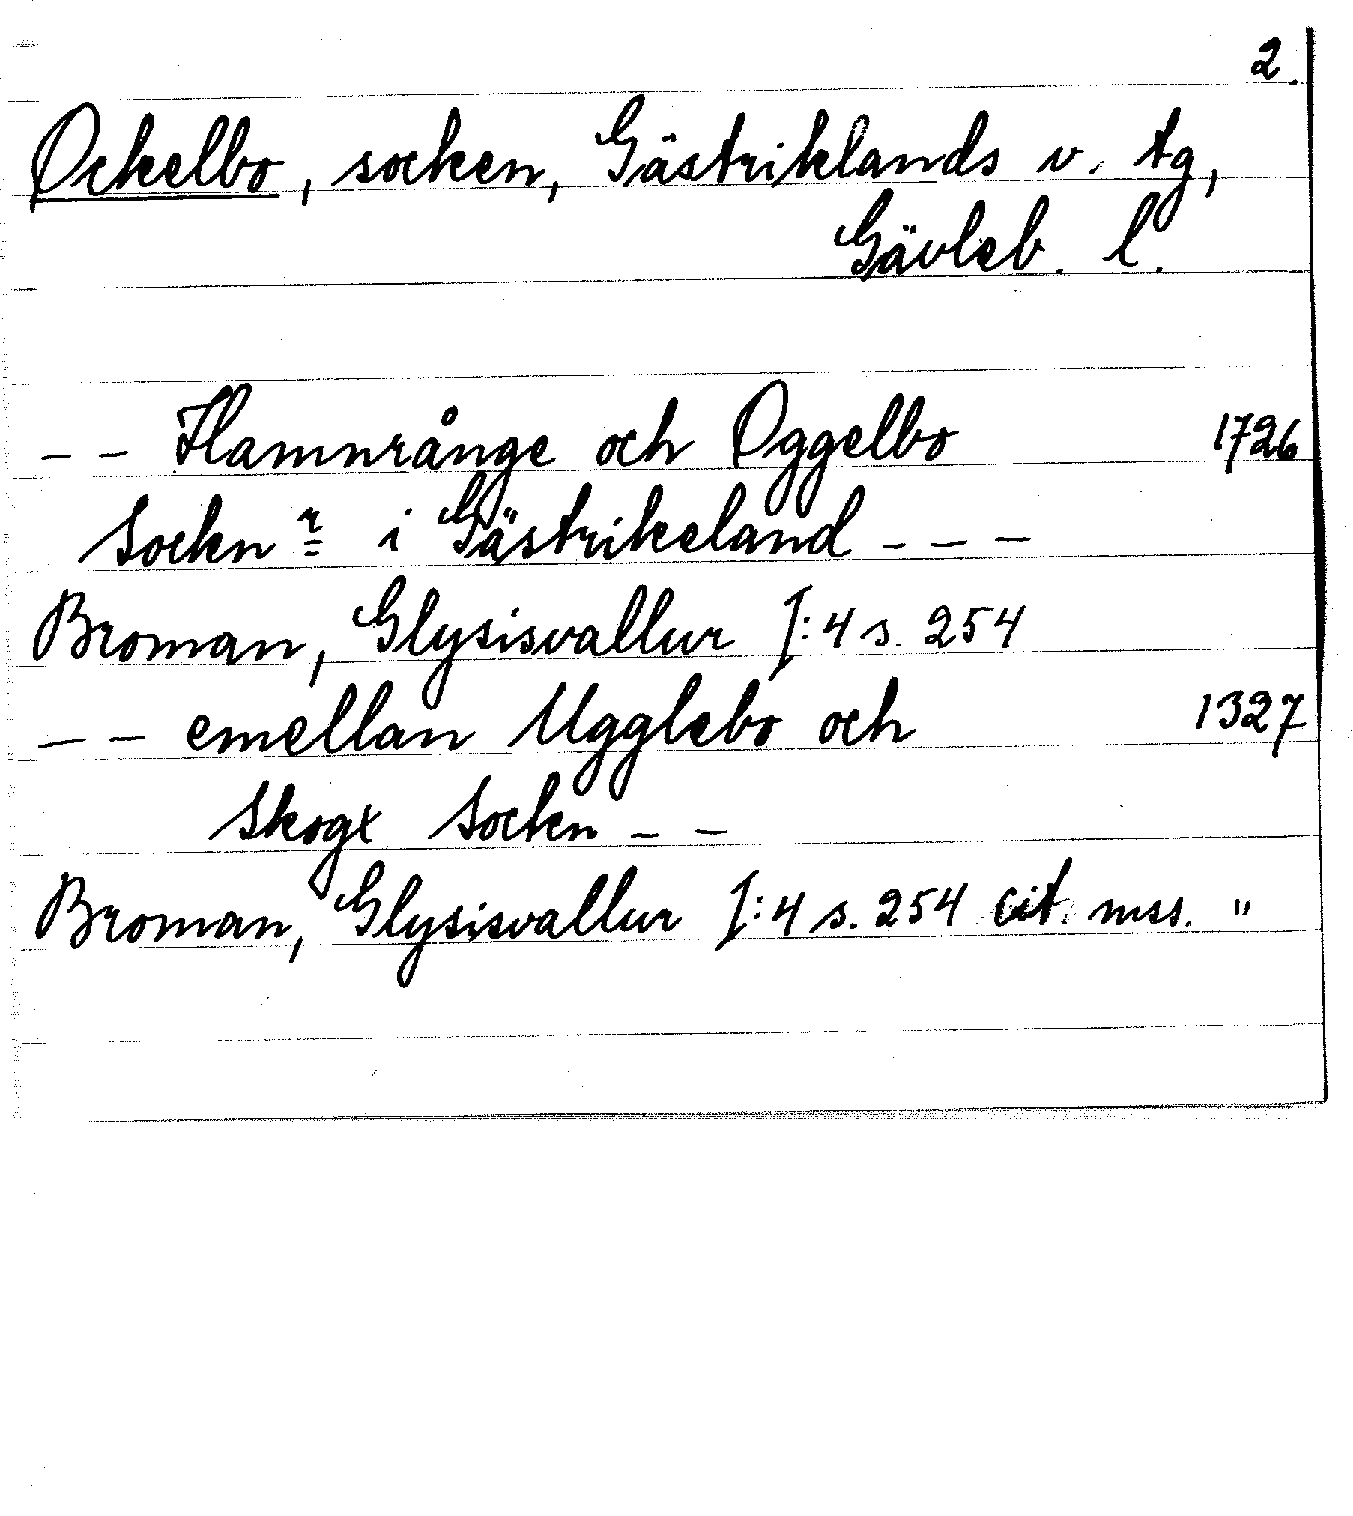 2.
Ockelbo, socken, Gästriklands v. tg,
Gävleb. l.
— — Hamnrånge och Oggelbo 1726
Sockn r i Gästrikeland — — —
Broman, Glysisvallur I:4 s. 254
— — emellan Ugglebo och 1327
Skogx Sockn — —
Broman, Glysisvallur I:4 s. 254 cit. mss. "